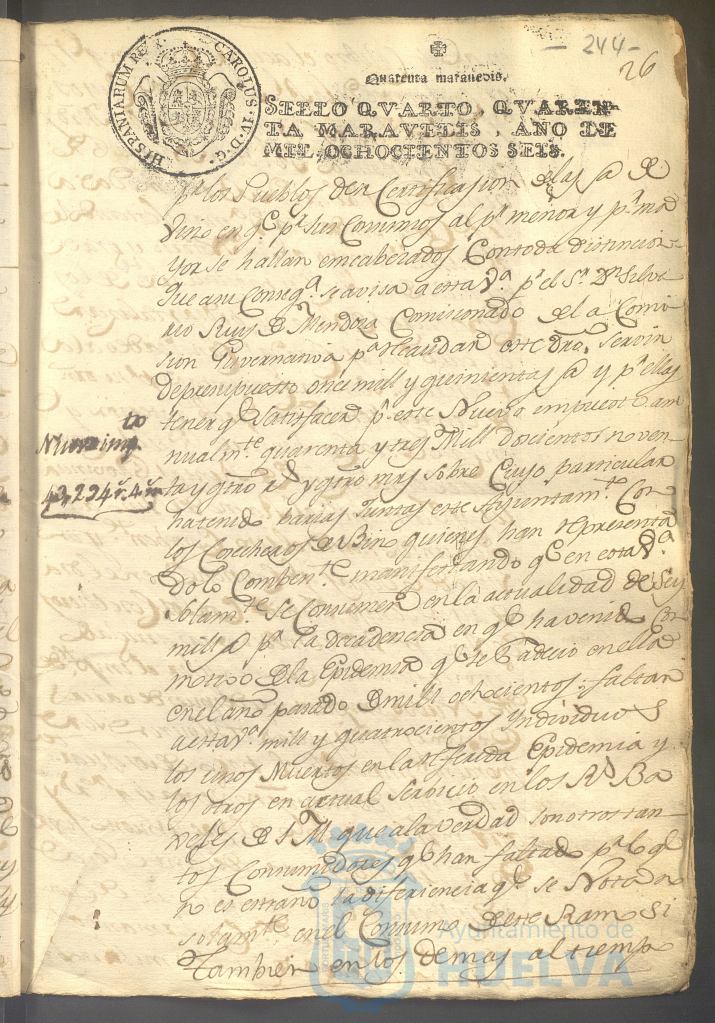 - 244 -
26
HISPANIARUM REX. CAROLUS. IV. D. G.
Quarenta maravedis.
SELLO QVARTO, QVAREN-
TA MARAVEDIS, AÑO DE
MIL OCHOCIENTOS SEIS.
pr. los Pueblos den Certificasion de las @ de
Vino en qe. pr. sus Consumos al pr. menor y pr. ma
yor se hallan encabezados Con toda distincion
que a su Conseqa. se avisa a esta Va. pr. el Sr. Dn. Silve
rio Ruiz de Mendoza Comisionado de la Comi
sion Guvernativa pa. Recaudar este dro. servin
de presupuesto once mill y quinientas @ y pr. ellas
tener qe. Satisfacer pr. este Nuevo impuesto an
nualmte. quarenta y tres Mill docientos noven
ta y qtro. rs. y qtro. mrs sobre Cuyo particular
ha tenido barias Juntas este Ayuntamto. Con
los Cosecheros de Bino quienes han representa
do lo Combente. manifestando qe. en esta Va.
solamte. se Consumen en la actualidad de Seis
mill @ pr. la decadencia en qe. ha venido Con
motivo de la Epidemia qe. se Padecio en ella
en el año pasado de mill ochocientos; faltan
a esta Va. mill y quatrocientos Yndividuos
los unos Muertos en la referida Epidemia y
los otros en actual servicio en los Rs. Ba
xeles de S. M. que a la verdad son otros tan
tos Consumidores qe. han faltado pr. lo qe.
n es estraño la diferiencia qe. se Nota no
solamte. en el Consumo de este Ramo si
tambien en los demas al tiempo
Nuevo impto
43,294 rs. 4 ms
Ayuntamiento de
HUELVA